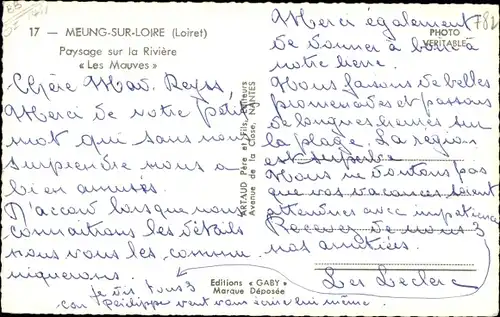 17 — MEUNG-SUR-LOIRE (Loiret)
Paysage sur la Rivière
« Les Mauves »
Chère Mad. Reyss,
Merci de votre petit
mot qui sans nous
surprendre nous a
bien amusés.
D'accord lorsque nous
connaitrons les détails
nous vous les commu
niquerons.
je dis tous 3
car Philippe veut vous écrire lui même.
ARTAUD Père et Fils, Éditeurs
Avenue de la Close, NANTES
Editions « GABY »
Marque Déposée
PHOTO
VÉRITABLE
782
Merci également
de donner à boire à
notre lierre.
Nous faisons de belles
promenades et passons
de longues heures sur
la plage. La région
est superbe
Nous ne doutons pas
que vos vacances soient
attendues avec impatience
Recevez de nous 3
nos amitiés.
Les Leclerc